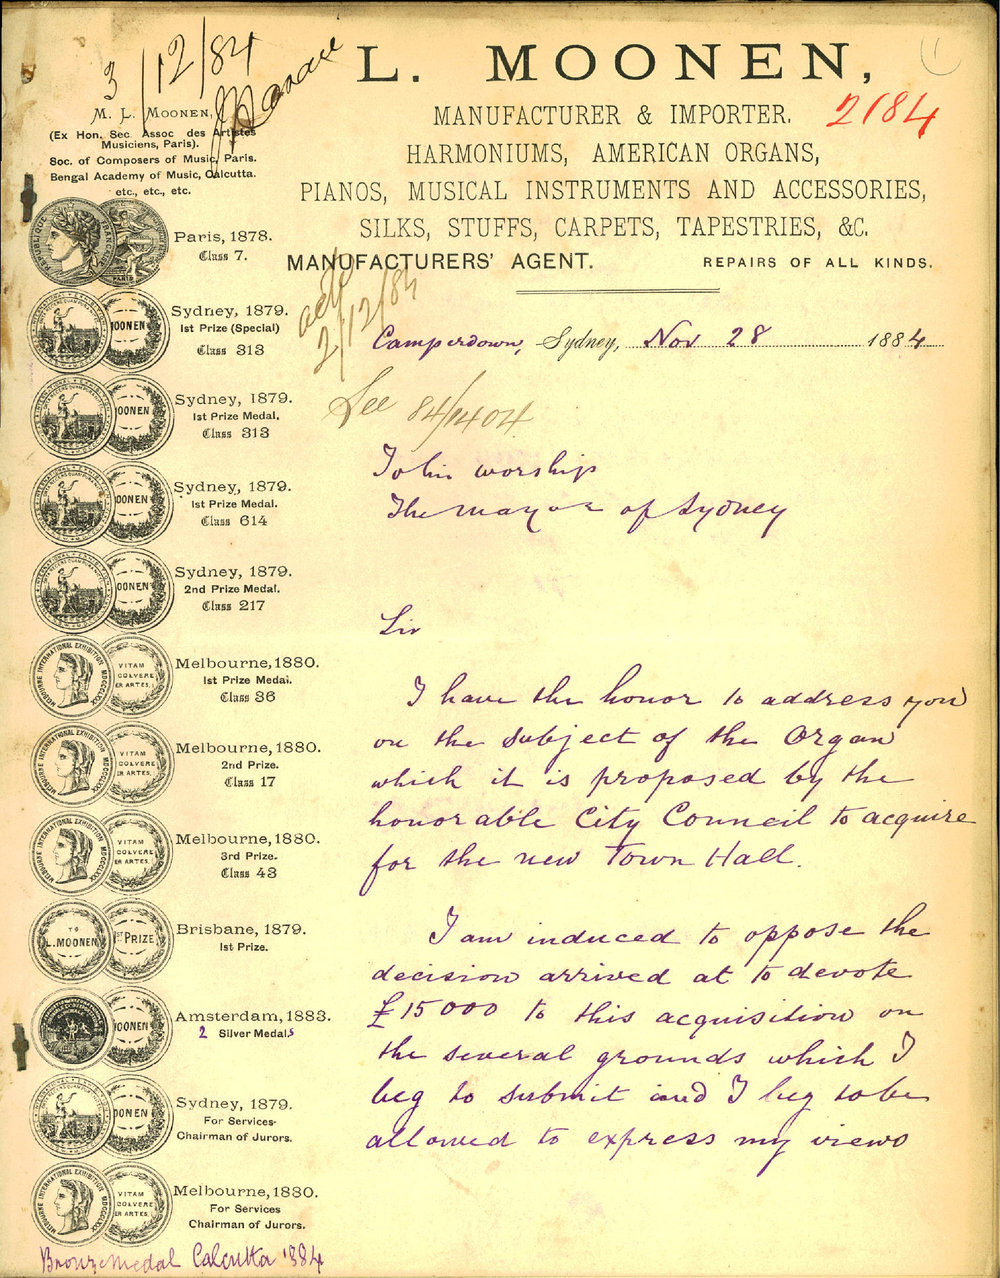 3/12/84
L. MOONEN,
2184
MANUFACTURER & IMPORTER.
HARMONIUMS, AMERICAN ORGANS,
PIANOS, MUSICAL INSTRUMENTS AND ACCESSORIES,
SILKS, STUFFS, CARPETS, TAPESTRIES, &C.
MANUFACTURERS' AGENT. REPAIRS OF ALL KINDS.
M. L. MOONEN,
(Ex Hon. Sec. Assoc des Artistes
Musiciens, Paris).
Soc. of Composers of Music, Paris.
Bengal Academy of Music, Calcutta.
etc., etc., etc.
Paris, 1878.
Class 7.
Sydney, 1879.
1st Prize (Special)
Class 313
Sydney, 1879.
1st Prize Medal.
Class 313
Sydney, 1879.
1st Prize Medal.
Class 614
Sydney, 1879.
2nd Prize Medal.
Class 217
Melbourne, 1880.
1st Prize Medal.
Class 36
Melbourne, 1880.
2nd Prize.
Class 17
Melbourne, 1880.
3rd Prize.
Class 43
Brisbane, 1879.
1st Prize.
Amsterdam, 1883.
2 Silver Medals
Sydney, 1879.
For Services
Chairman of Jurors.
Melbourne, 1880.
For Services
Chairman of Jurors.
Bronze medal Calcutta 1884
2/12/84
Camperdown, Sydney, Nov 28 1884
See 84/1404
To his worship
The mayor of Sydney
Sir
I have the honor to address you
on the subject of the Organ
which it is proposed by the
honorable City Council to acquire
for the new Town Hall.
I am induced to oppose the
decision arrived at to devote
£15000 to this acquisition on
the several grounds which I
beg to submit and I beg to be
allowed to express my views